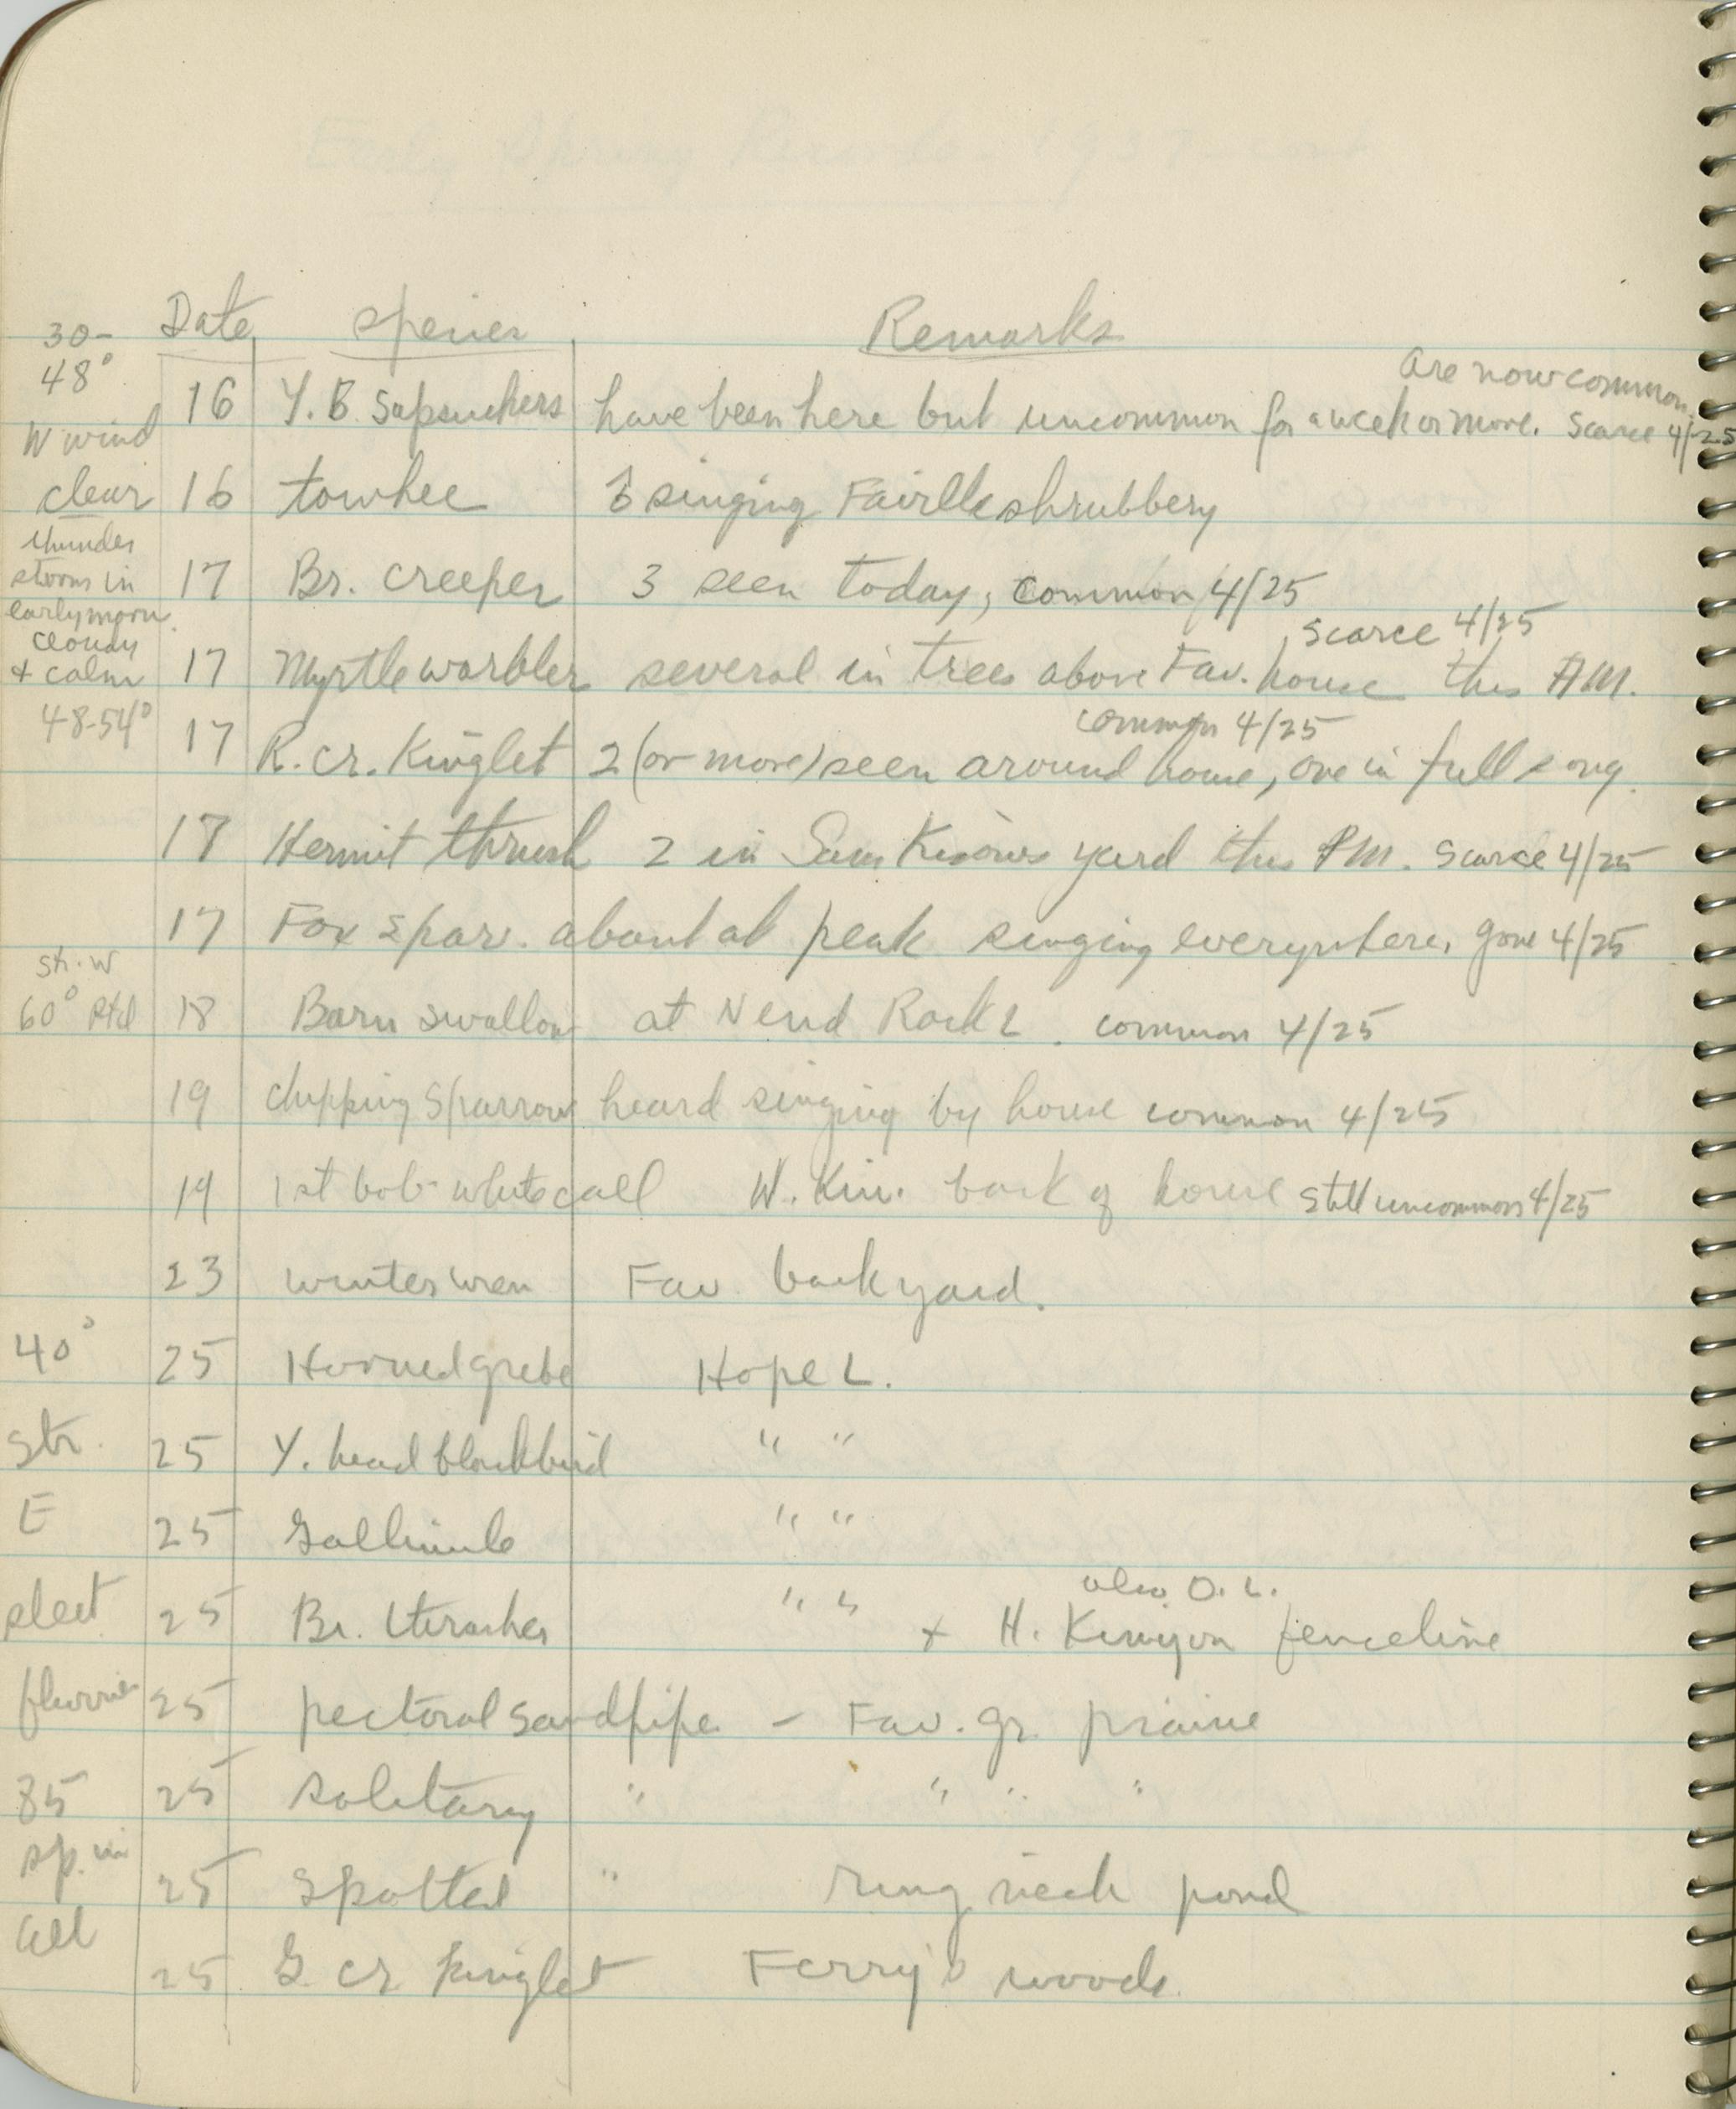 Date species Remarks
30-
48°
are now common.
16 Y. B. Sapsuckers have been here but uncommon for a week or more. Scarce 4/25
W wind
clear 16 towhee singing shrubbery
thunder
storm in 17 Br. Creeper 3 seen today, common 4/25
early morn.
cloudy scarce 4/25
+ calm 17 Myrtle warbler several in trees above Fav. house this AM.
48-54° common 4/25
17 R. cr. Kinglet 2 (or more) seen around house, one in full song.
17 Hermit thrush 2 in Sam yard this PM. Scarce 4/25
17 Fox spar. about at peak singing everywhere, gone 4/25
str. W
60° 18 Barn swallow at N end Rock L. common 4/25
19 chipping sparrow heard singing by house common 4/25
19 1st bob-white call W. Kin. back of house still uncommon 4/25
23 winter wren Fav. back yard.
40° 25 Horned grebe Hope L.
Str. 25 Y. head blackbird " "
E 25 Gallinule " "
also O. L.
sleet 25 Br. thrasher " " + H. Kinyon fenceline
flurries 25 pectoral sandpiper - Fav. gr. prairie
35 25 Solitary " " " "
sp. in
25 Spotted " ring neck pond
all
25 G. cr. kinglet Ferry's woods